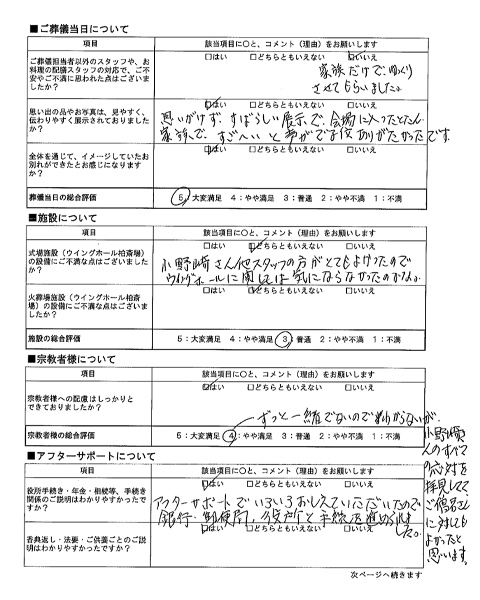 ■ご葬儀当日について
項目 該当項目に○と、コメント（理由）をお願いします
ご葬儀担当者以外のスタッフや、お
料理の配膳スタッフの対応で、ご不
安やご不満に思われた点はございま
したか？
□はい □どちらともいえない ☑いいえ
家族だけで、ゆっくり
させてもらいました。
思い出の品やお写真は、見やすく、
伝わりやすく展示されておりました
か？
☑はい □どちらともいえない □いいえ
思いがけず、すばらしい展示で、会場に入ったとたん
家族で、すご～いと声がでる位ありがたかったです。
全体を通じて、イメージしていたお
別れができたとお感じになります
か？
☑はい □どちらともいえない □いいえ
葬儀当日の総合評価 5：大変満足 4：やや満足 3：普通 2：やや不満 1：不満
■施設について
項目 該当項目に○と、コメント（理由）をお願いします
式場施設（ウイングホール柏斎場）
の設備にご不満な点はございました
か？
□はい ☑どちらともいえない □いいえ
小野崎さん他スタッフの方がとてもよかったので
ウイングホールに関しては気にならなかったのかな。
火葬場施設（ウイングホール柏斎
場）の設備にご不満な点はございま
したか？
□はい □どちらともいえない □いいえ
施設の総合評価 5：大変満足 4：やや満足 3：普通 2：やや不満 1：不満
■宗教者様について
項目 該当項目に○と、コメント（理由）をお願いします
宗教者様への配慮はしっかりと
できておりましたか？
☑はい □どちらともいえない □いいえ
ずっと一緒でないのでわからないが、
小野崎さ
んのすべて
の応対を
拝見してて
ご僧呂さん
に対しても
よかったと
思います。
宗教者様の総合評価 5：大変満足 4：やや満足 3：普通 2：やや不満 1：不満
■アフターサポートについて
項目 該当項目に○と、コメント（理由）をお願いします
役所手続き・年金・相続等、手続き
関係のご説明はわかりやすかったで
すか？
☑はい □どちらともいえない □いいえ
アフターサポートでいろいろおしえていただいたので
銀行、郵便局、役所と手続を進められました。
香典返し・法要・ご供養ごとのご説
明はわかりやすかったですか？
☑はい □どちらともいえない □いいえ
次ページへ続きます